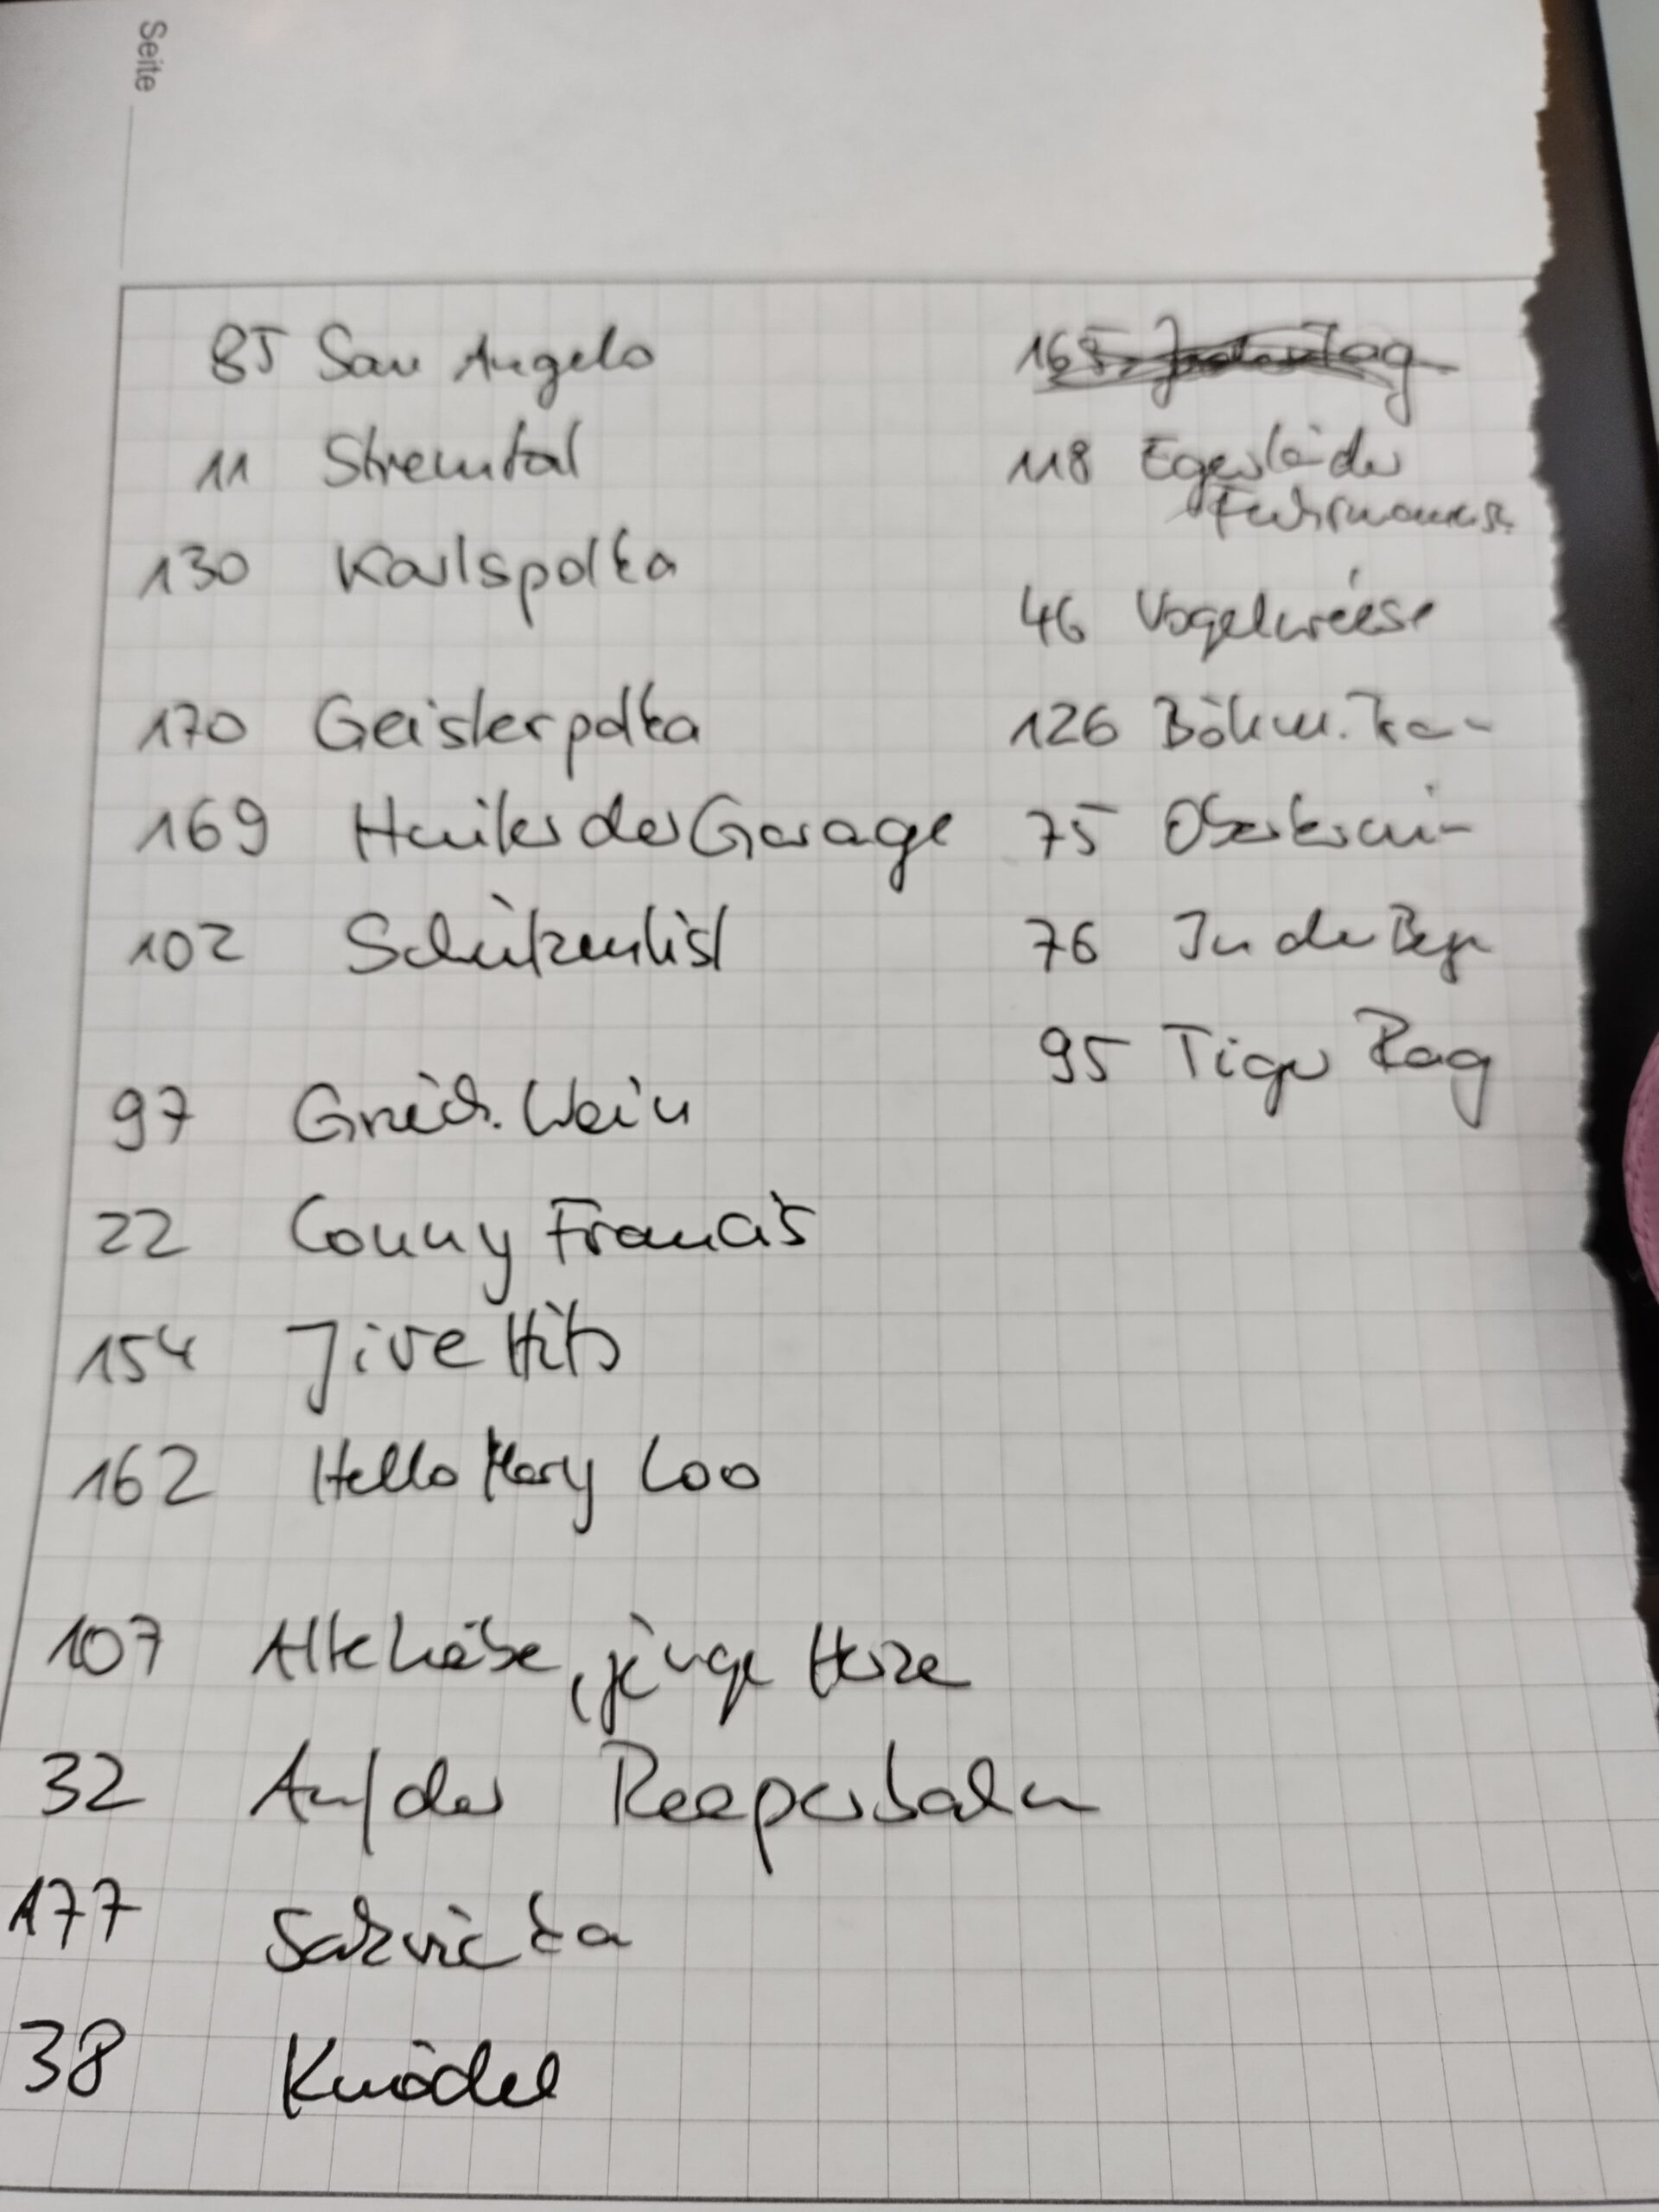 Seite
85 San Angelo
11 Stremtal
130 Karlspolka
170 Geisterpolka
169 Hinter der Garage
102 Schützenlisl
97 Griech. Wein
22 Conny Francis
154 Jive Hits
162 Hello Mary Loo
107 Alte Liebe, junge Herze
32 Auf der Reeperbahn
177 
38 Knödel
165 Jeden Tag
118 Egerländer
Fuhrmanns
46 Vogelwiese
126 Böhm.
75 Oberkrai-
76 In der
95 Tiger Rag